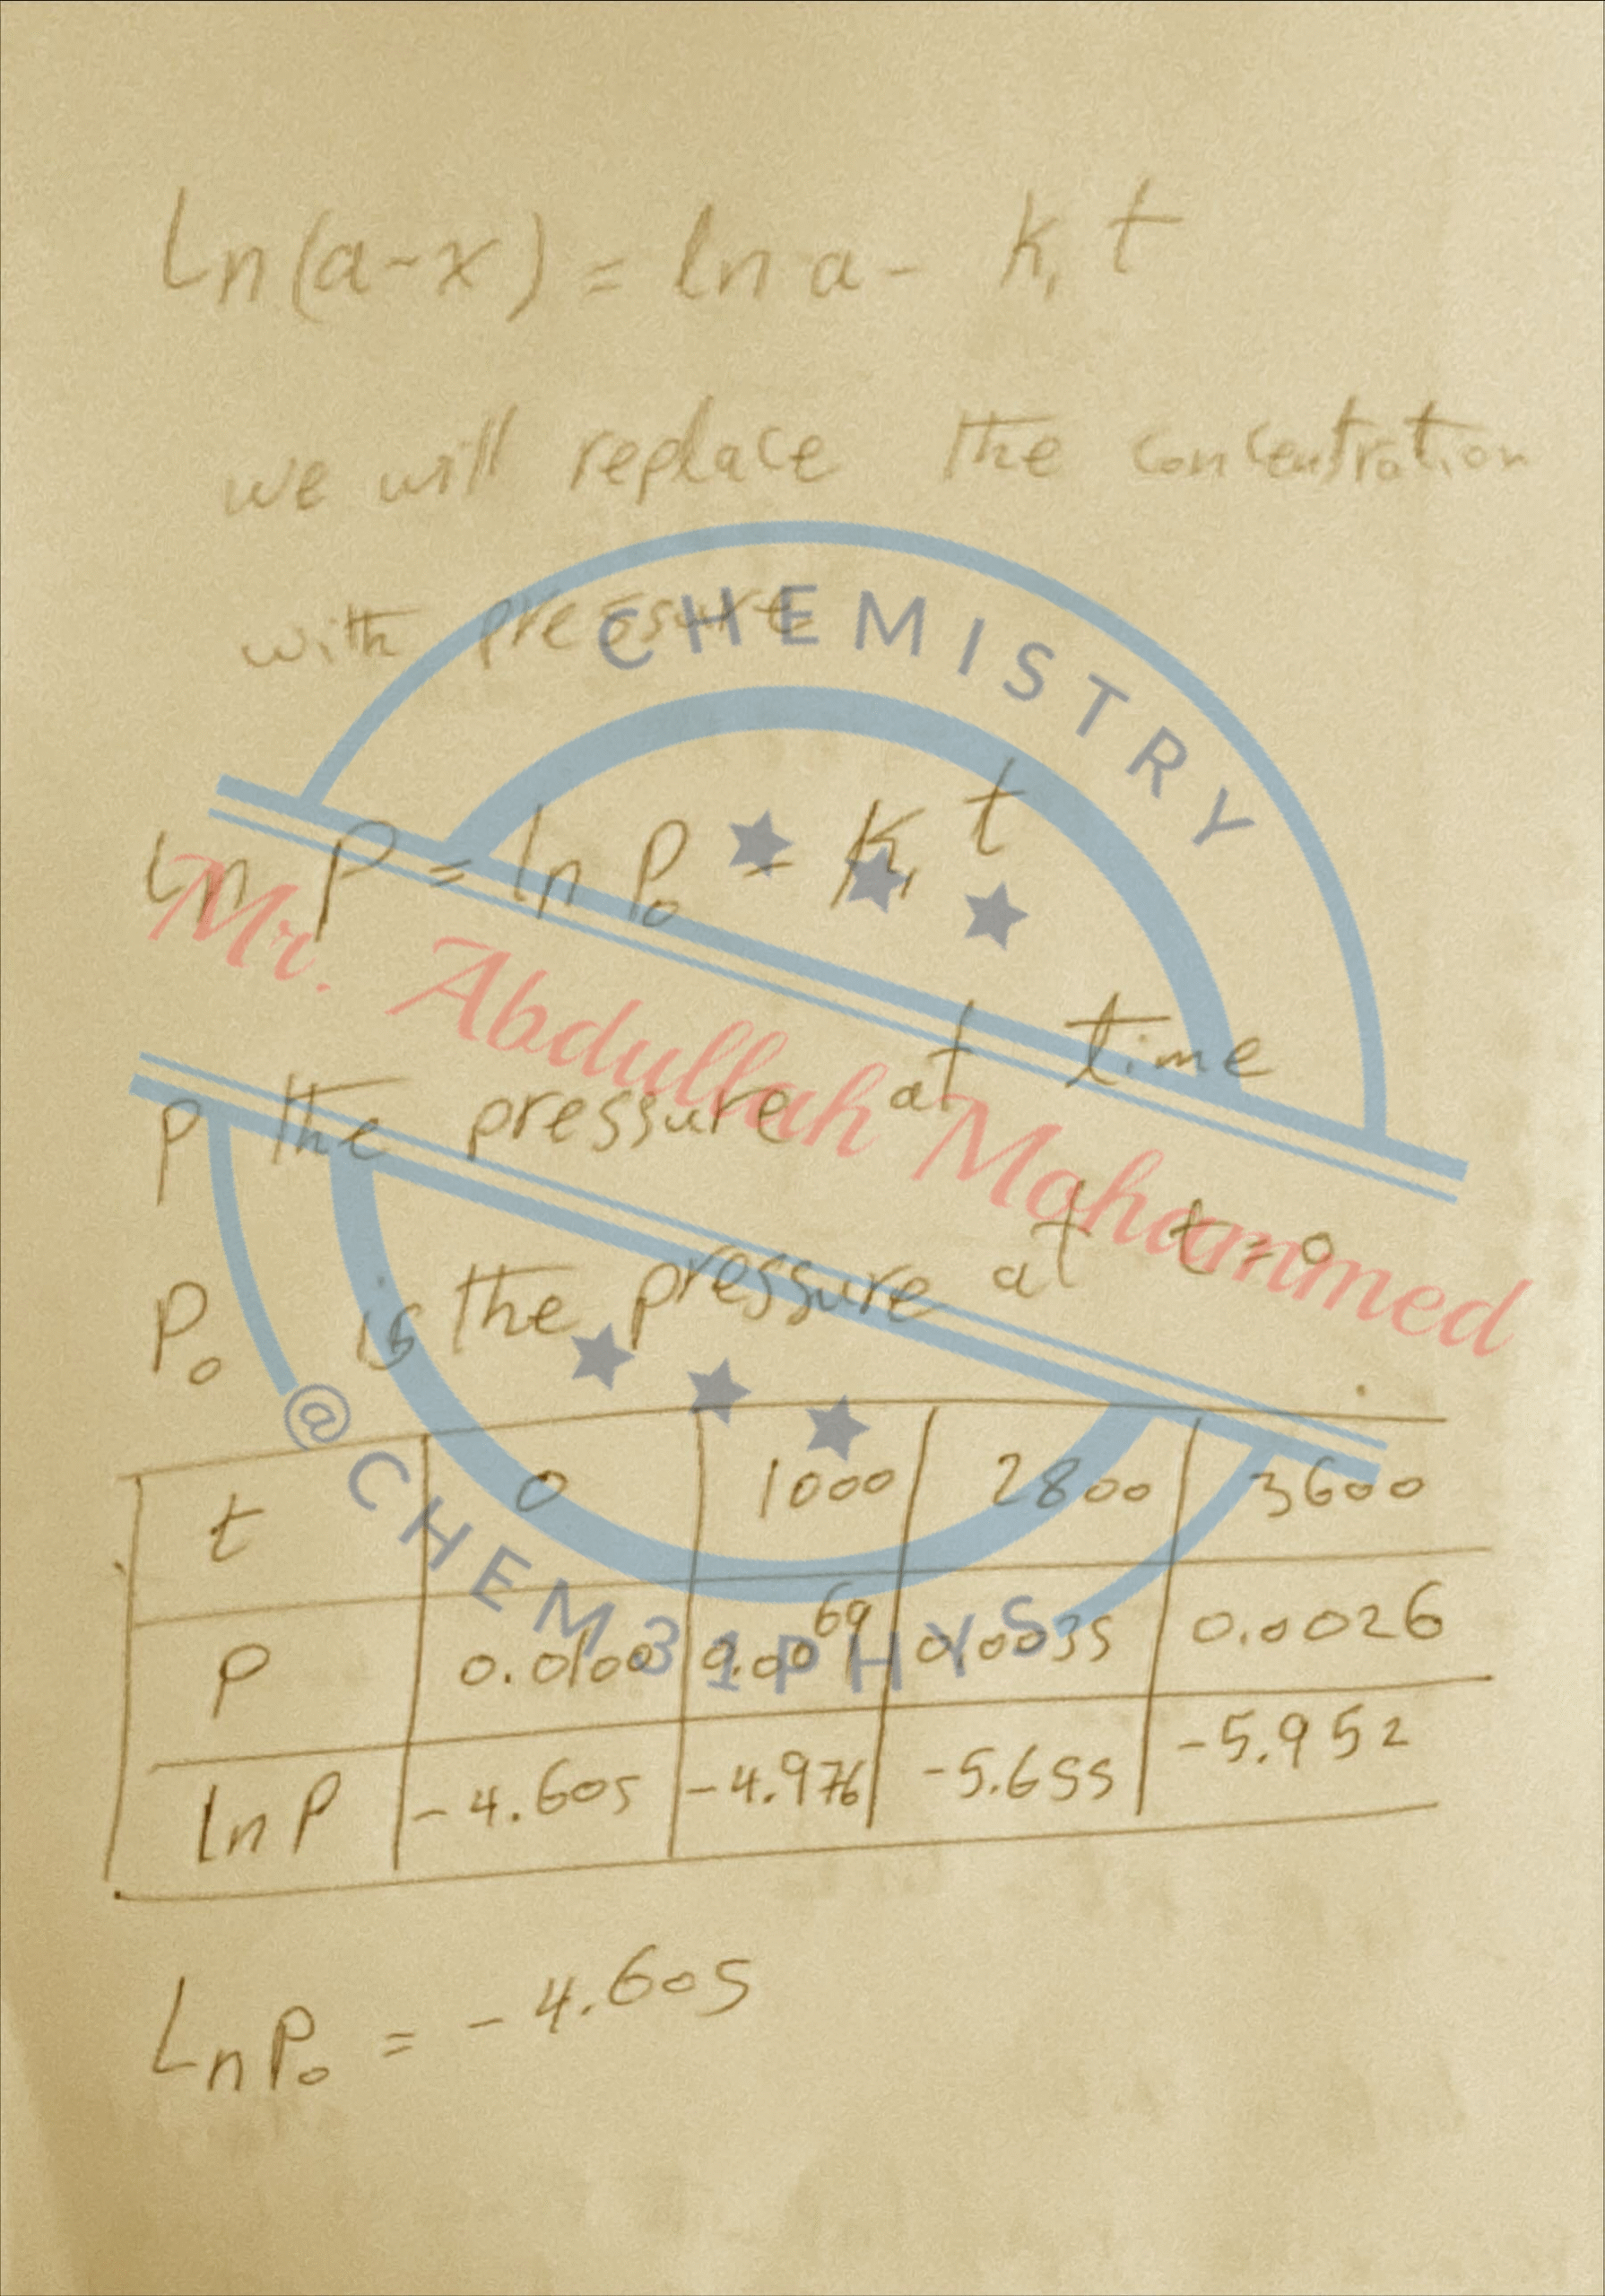 Ln(a-x) = ln a - K₁ t
we will replace the concentration
with pressure
CHEMISTRY
Ln P = ln P₀ - K₁ t
Mr. Abdullah Mohammed
P the pressure at time
P₀ is the pressure at t=0
@CHEM31PHYS
t 0 1000 2800 3600
P 0.0100 0.0069 0.0035 0.0026
ln P -4.605 -4.976 -5.655 -5.952
Ln P₀ = -4.605